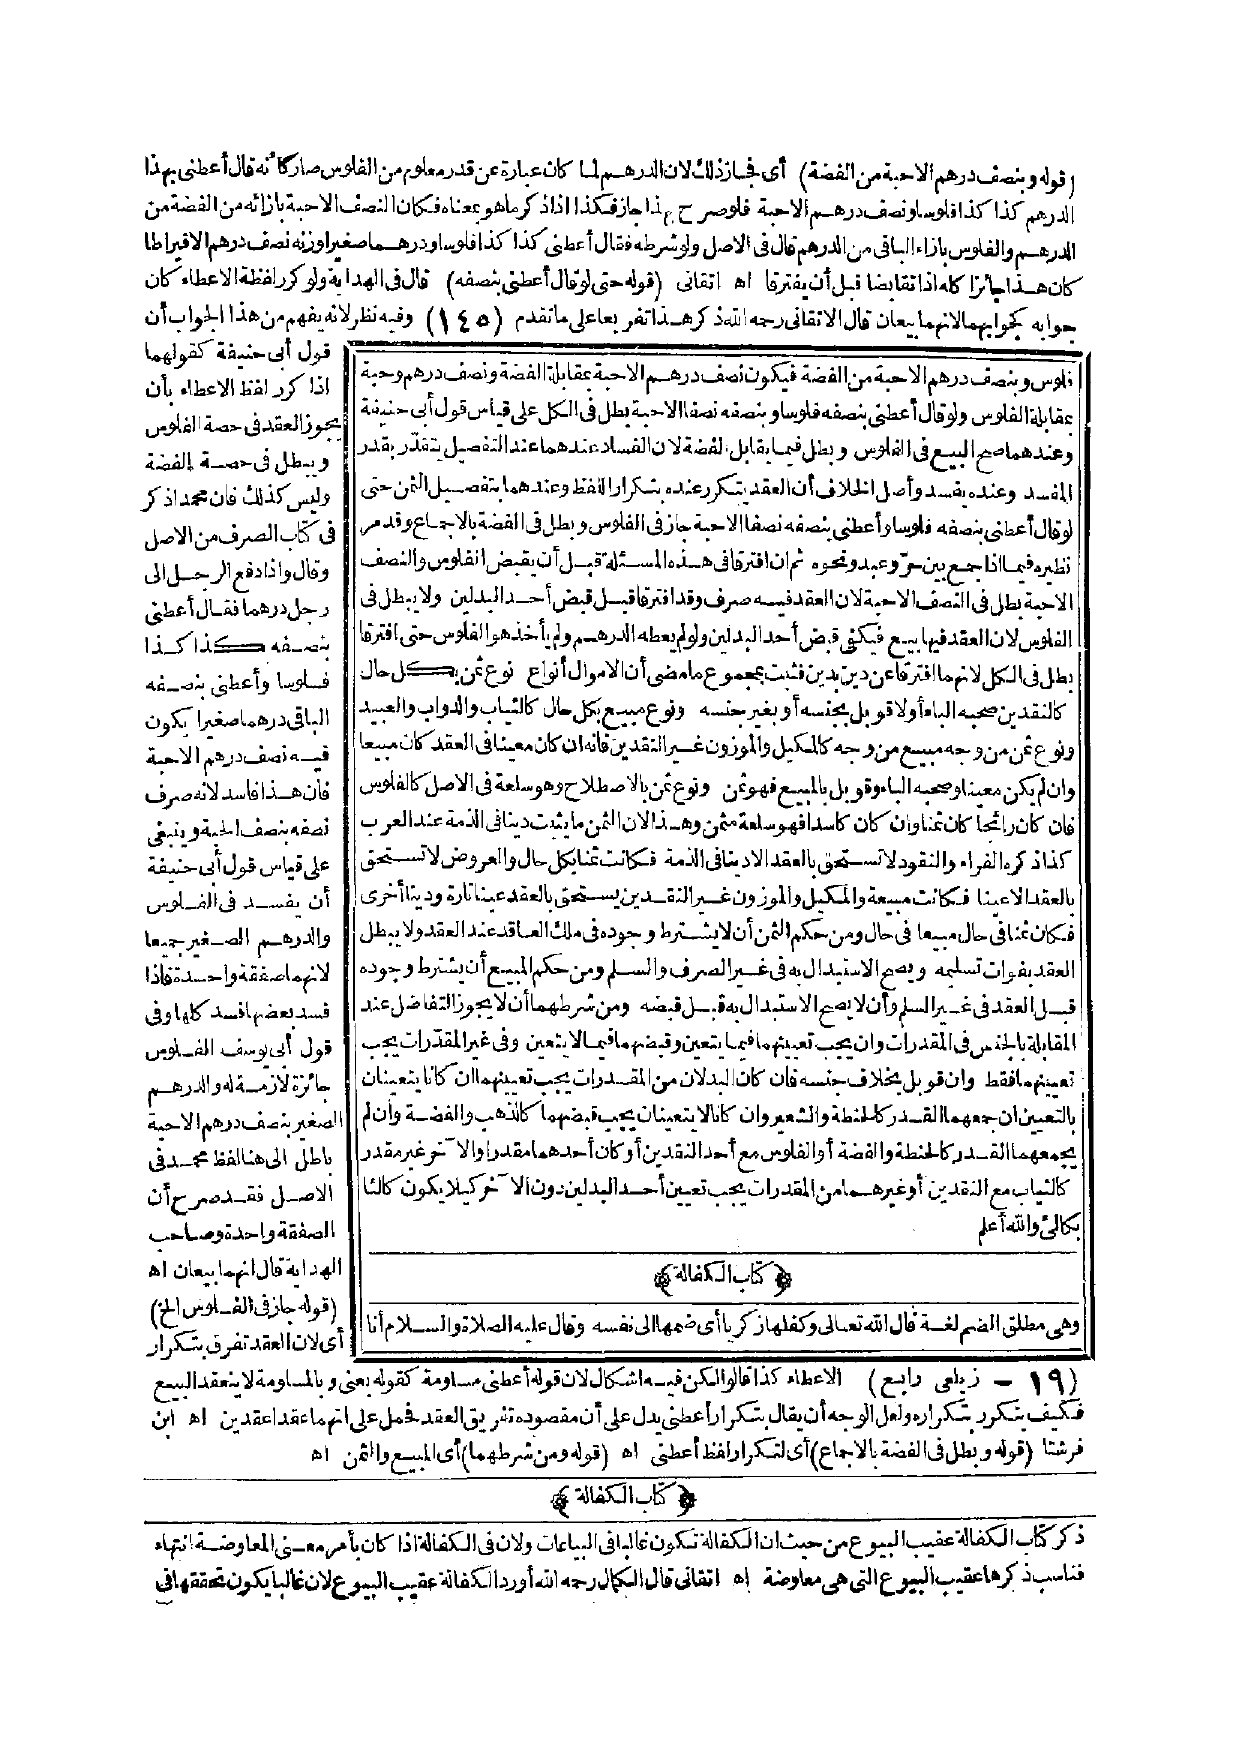 (قوله وبنصف درهم الاحبة من الفضة) أى فجاز ذلك لان الدرهم لما كان عبارة عن قدر معلوم من الفلوس صار كأنه قال أعطنى بهذا
الدرهم كذا كذا فلوسا ونصف درهم الاحبة فلوصرح بهذا جاز فكذا اذا ذكر ما هو بمعناه فكان النصف الاحبة بازائه من الفضة من
الدرهم والفلوس بازاء الباقى من الدرهم قال فى الاصل ولو شرطه فقال أعطنى كذا كذا فلوسا ودرهما صغيرا وزنه نصف درهم الاقيراطا
كان هذا جائزا كله اذا تقابضا قبل أن يفترقا اه اتقانى (قوله حتى لو قال أعطنى بنصفه) قال فى الهداية ولو كرر لفظة الاعطاء كان
جوابه كجوابهما لانهما بيعان قال الاتقانى رحمه الله ذكر هذا تفريعا على ما تقدم (١٤٥) وفيه نظر لانه يفهم من هذا الجواب أن
قول أبى حنيفة كقولهما
اذا كرر لفظ الاعطاء بأن
يجوز العقد فى حصة الفلوس
ويبطل فى حصة الفضة
وليس كذلك فان محمدا ذكر
فى كتاب الصرف من الاصل
وقال واذا دفع الرجل الى
رجل درهما فقال أعطنى
بنصفه كذا كذا
فلوسا وأعطنى بنصفه
الباقى درهما صغيرا يكون
فيه نصف درهم الاحبة
فان هذا فاسد لانه صرف
نصفه بنصف الاحبة وينبغى
على قياس قول أبى حنيفة
أن يفسد فى الفلوس
والدرهم الصغير جميعا
لانهما صفقة واحدة فاذا
فسد بعضها فسد كلها وفى
قول أبى يوسف الفلوس
جائزة لازمة له والدرهم
الصغير بنصف درهم الاحبة
باطل الى هنا لفظ محمد فى
الاصل فقد صرح أن
الصفقة واحدة وصاحب
الهداية قال انهما بيعان اه
(قوله جاز فى الفلوس الخ)
أى لان العقد تفرق بتكرار
فلوس وبنصف درهم الاحبة من الفضة فيكون نصف درهم الاحبة بمقابلة الفضة ونصف درهم وحبة
بمقابلة الفلوس ولو قال أعطنى بنصفه فلوسا وبنصفه نصفا الاحبة بطل فى الكل على قياس قول أبى حنيفة
وعندهما صح البيع فى الفلوس وبطل فيما يقابل الفضة لان الفساد عندهما عند التفصيل يتقدر بقدر
المفسد وعنده يفسد وأصل الخلاف أن العقد يتكرر عنده بتكرار اللفظ وعندهما بتفصيل الثمن حتى
لو قال أعطنى بنصفه فلوسا وأعطنى بنصفه نصفا الاحبة جاز فى الفلوس وبطل فى الفضة بالاجماع وقد مر
نظيره فيما اذا جمع بين حر وعبد ونحوه ثم ان افترقا فى هذه المسئلة قبل أن يقبض الفلوس والنصف
الاحبة بطل فى النصف الاحبة لان العقد فيه صرف وقد افترقا قبل قبض أحد البدلين ولا يبطل فى
الفلوس لان العقد فيها بيع فيكفى قبض أحد البدلين ولو لم يعطه الدرهم ولم يأخذ هو الفلوس حتى افترقا
بطل فى الكل لانهما افترقا عن دين بدين فثبت بمجموع ما مضى أن الاموال أنواع نوع ثمن بكل حال
كالنقدين صحبه الباء أولا قوبل بجنسه أو بغير جنسه ونوع مبيع بكل حال كالثياب والدواب والعبيد
ونوع ثمن من وجه مبيع من وجه كالمكيل والموزون غير النقدين فانه ان كان معينا فى العقد كان مبيعا
وان لم يكن معينا وصحبه الباء وقوبل بالمبيع فهو ثمن ونوع ثمن بالاصطلاح وهو سلعة فى الاصل كالفلوس
فان كان رائجا كان ثمنا وان كان كاسدا فهو سلعة مثمن وهذا لان الثمن ما يثبت دينا فى الذمة عند العرب
كذا ذكره الفراء والنقود لا تستحق بالعقد الا دينا فى الذمة فكانت ثمنا بكل حال والعروض لا تستحق
بالعقد الاعينا فكانت مبيعة والمكيل والموزون غير النقدين يستحق بالعقد عينا تارة ودينا أخرى
فكان ثمنا فى حال مبيعا فى حال ومن حكم الثمن أن لا يشترط وجوده فى ملك العاقد عند العقد ولا يبطل
العقد بفوات تسليمه ويصح الاستبدال به فى غير الصرف والسلم ومن حكم المبيع أن يشترط وجوده
قبل العقد فى غير السلم وأن لا يصح الاستبدال به قبل قبضه ومن شرطهما أن لا يجوز التفاضل عند
المقابلة بالجنس فى المقدرات وان يجب تعيينهما فيما يتعين وقبضهما فيما لا يتعين وفى غير المقدرات يجب
تعيينهما فقط وان قوبل بخلاف جنسه فان كان البدلان من المقدرات يجب تعيينهما ان كانا يتعينان
بالتعيين ان جمعهما القدر كالحنطة والشعير وان كانا لا يتعينان يجب قبضهما كالذهب والفضة وأن لم
يجمعهما القدر كالحنطة والفضة أو الفلوس مع أحد النقدين أو كان أحدهما مقدرا والآخر غير مقدر
كالثياب مع النقدين أو غيرهما من المقدرات يجب تعيين أحد البدلين دون الآخر كيلا يكون كالئا
بكالئ والله أعلم
﴿كتاب الكفالة﴾
وهى مطلق الضم لغة قال الله تعالى وكفلها زكريا أى ضمها الى نفسه وقال عليه الصلاة والسلام أنا
(١٩ - زيلعى رابع) الاعطاء كذا قالوا لكن فيه اشكال لان قوله أعطنى مساومة كقوله بعنى وبالمساومة لا ينعقد البيع
فكيف يتكرر بتكراره ولعل الوجه أن يقال بتكرار أعطنى يدل على أن مقصوده تفريق العقد فحمل على انهما عقدا عقدين اه ابن
فرشتا (قوله وبطل فى الفضة بالاجماع) أى لتكرار لفظ أعطنى اه (قوله ومن شرطهما) أى المبيع والثمن اه
﴿كتاب الكفالة﴾
ذكر كتاب الكفالة عقيب البيوع من حيث ان الكفالة تكون غالبا فى البياعات ولان فى الكفالة اذا كان بأمر معنى المعاوضة انتهاء
فناسب ذكرها عقيب البيوع التى هى معاوضة اه اتقانى قال الكمال رحمه الله أورد الكفالة عقيب البيوع لان غالبا يكون تحققها فى